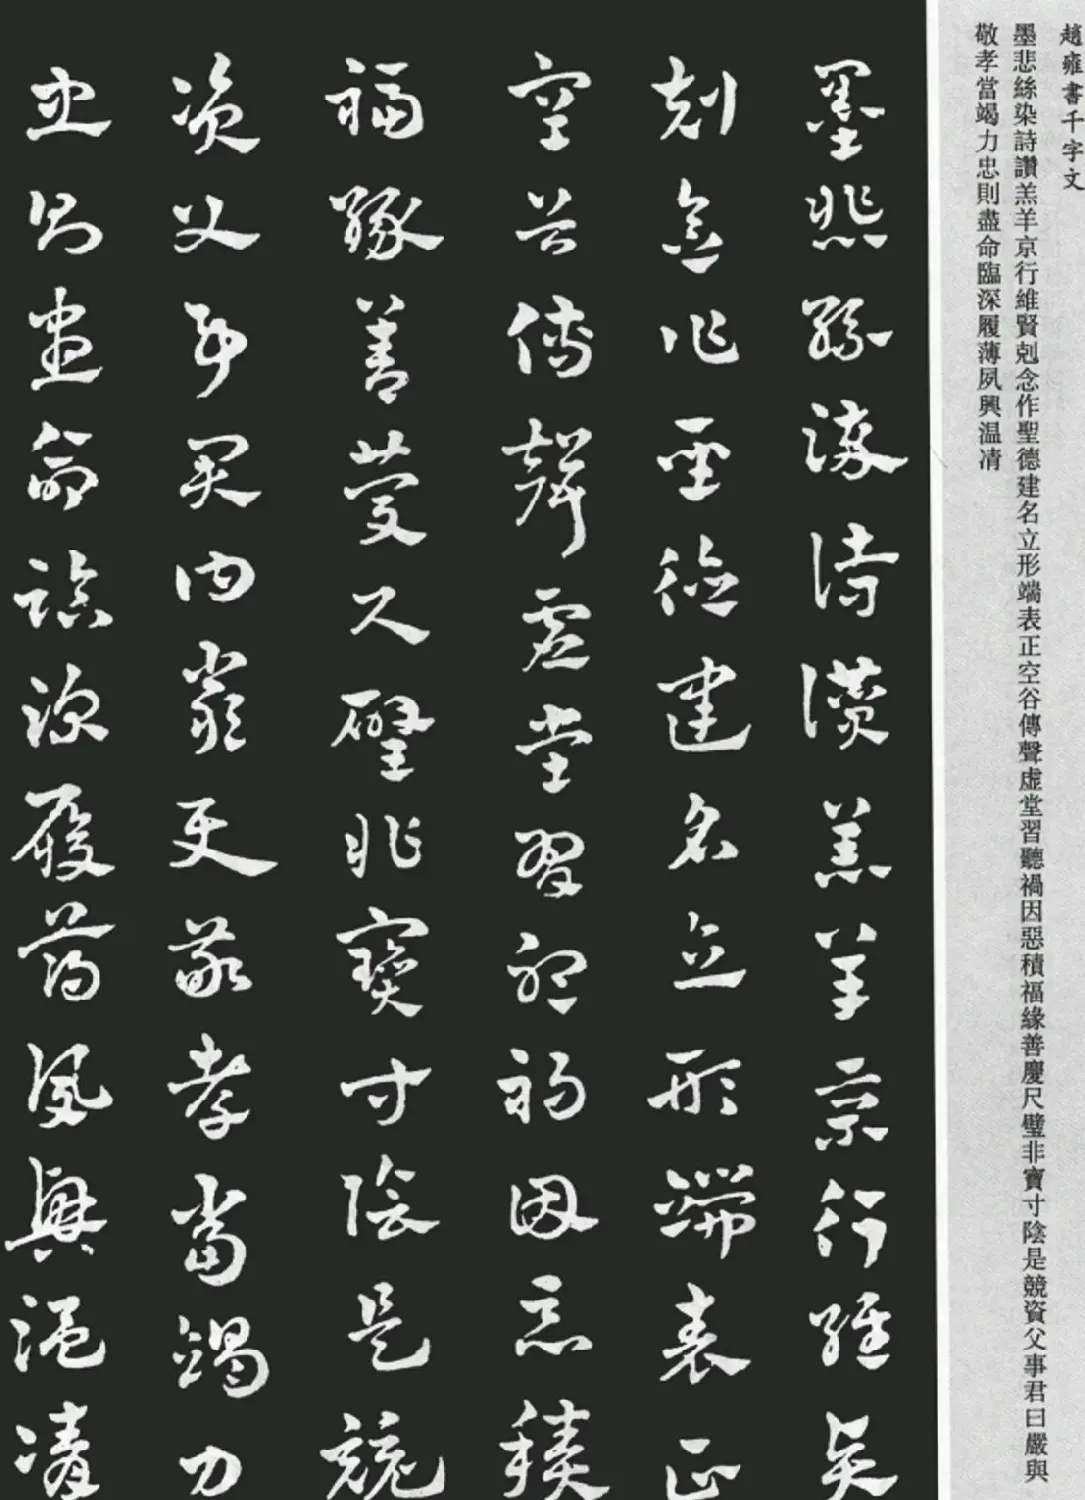 趙雍書千字文
墨悲絲染詩讚羔羊京行維賢剋念作聖德建名立形端表正空谷傳聲虚堂習聽禍因惡積福緣善慶尺璧非寶寸陰是競資父事君曰嚴與
敬孝當竭力忠則盡命臨深履薄夙興温凊
墨悲絲染詩讚羔羊京行維賢
剋念作聖德建名立形端表正
空谷傳聲虚堂習聽禍因惡積
福緣善慶尺璧非寶寸陰是競
資父事君曰嚴與敬孝當竭力
忠則盡命臨深履薄夙興温凊